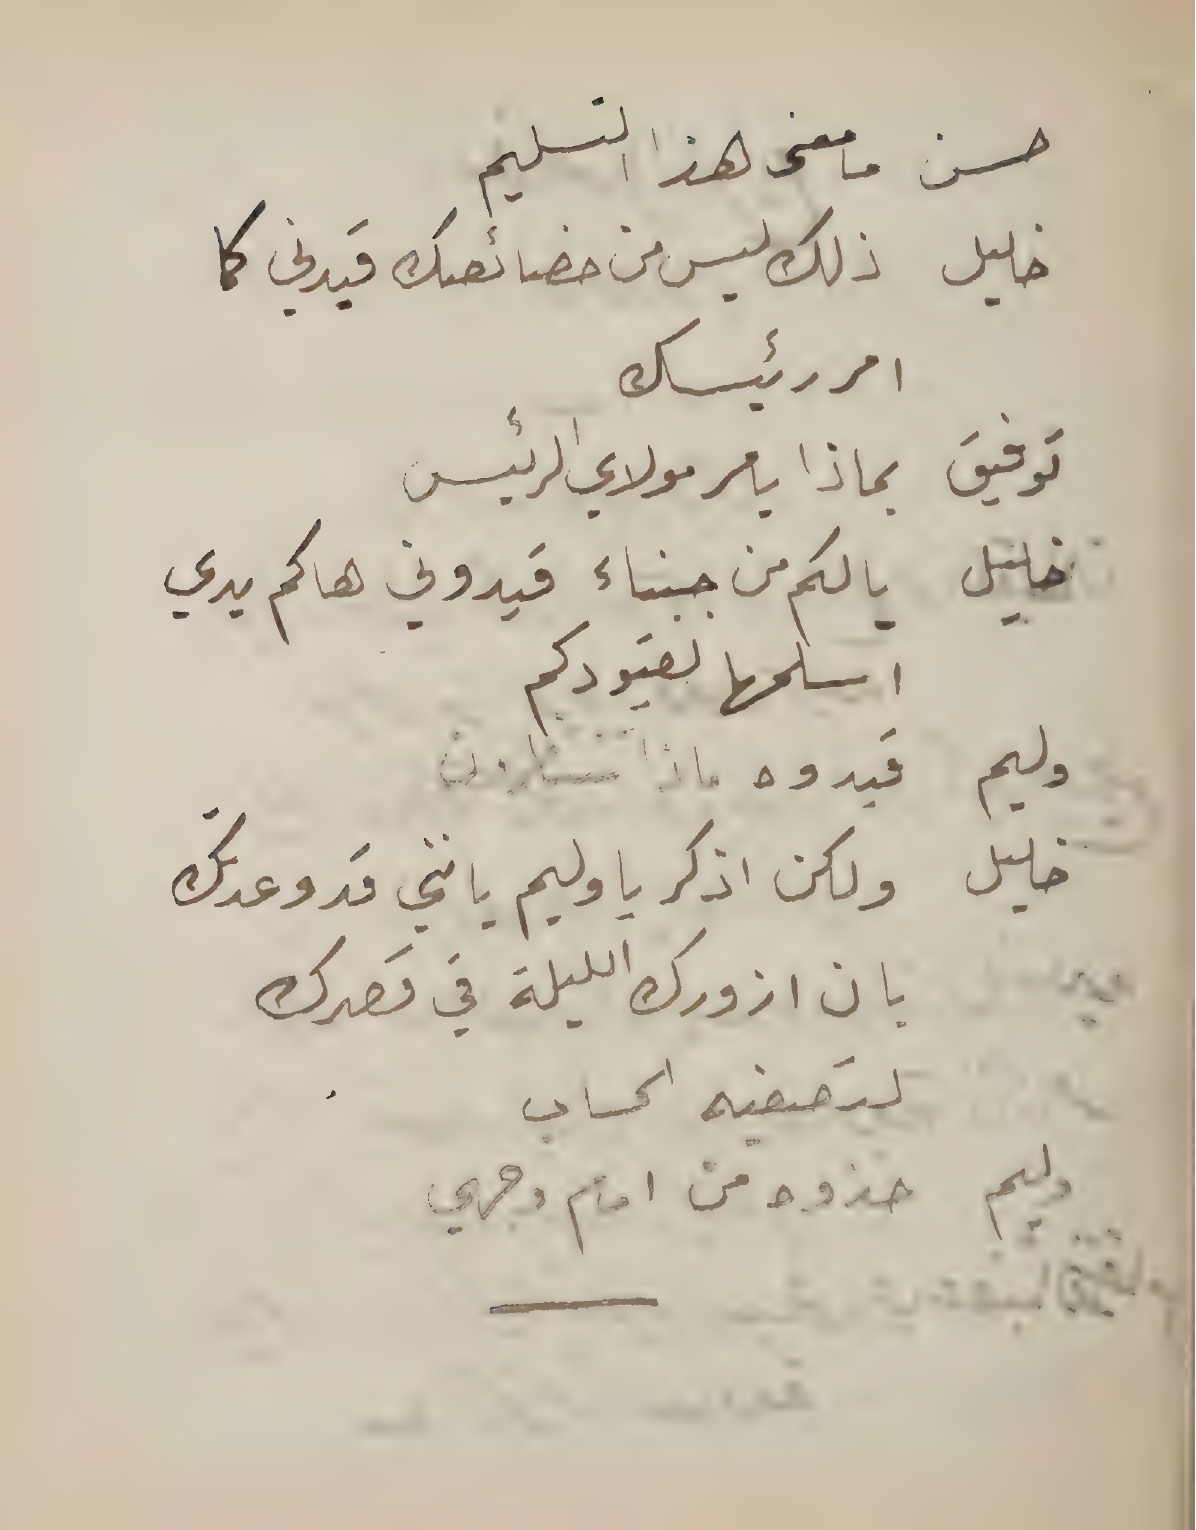 حسن ما معنى هذا التسليم
خليل ذلك ليس من خصائصك قيدني كما
امر رئيسك
توفيق بماذا يامر مولاي الرئيس
خليل يا لكم من جبناء قيدوني هاكم يدي
اسلمها لقيودكم
وليم قيدوه ماذا تنتظرون
خليل ولكن اذكر يا وليم يا نني قد وعدتك
بان ازورك الليلة في قصرك
لتصفيه الحساب
وليم خذوه من امام وجهي